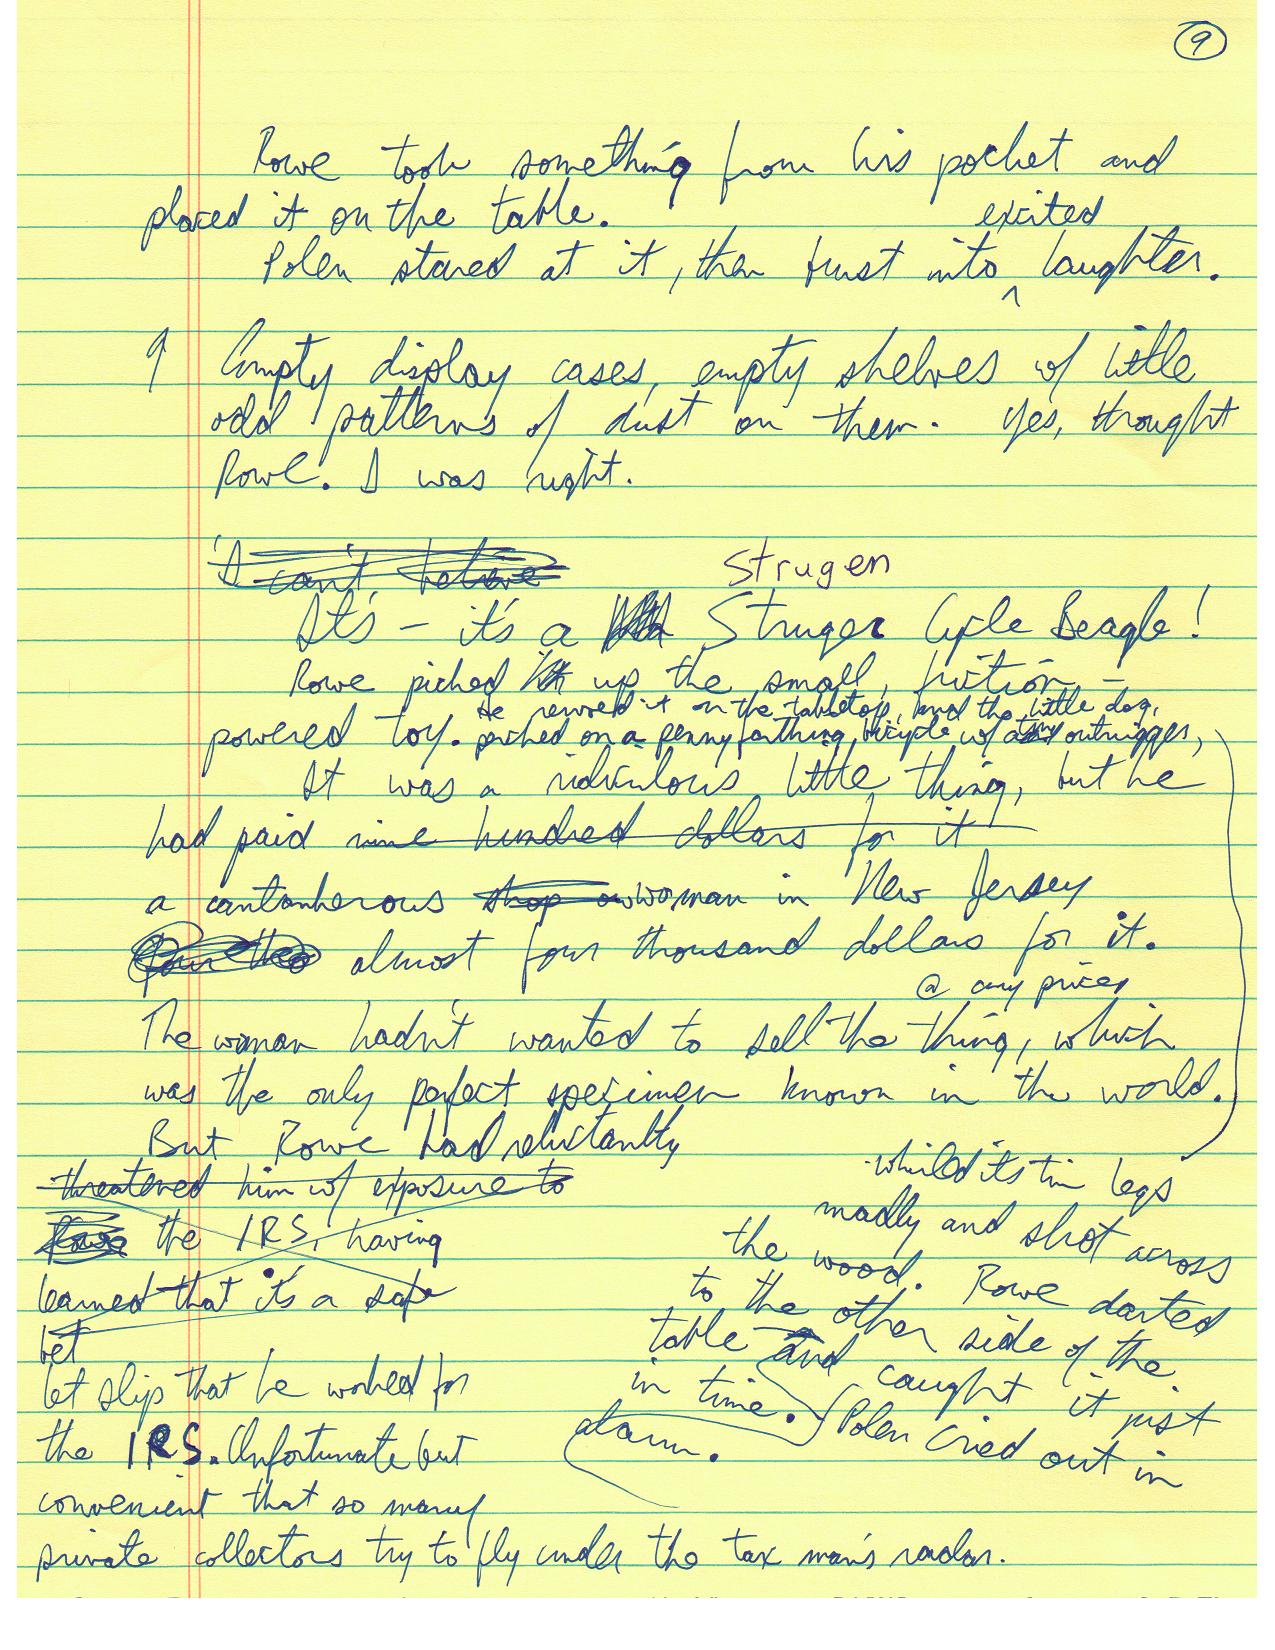 9
Rowe took something from his pocket and
placed it on the table.
excited
Polen stared at it, then burst into ^ laughter.
¶ Empty display cases, empty shelves w/ little
odd patterns of dust on them. Yes, thought
Rowe. I was right.
"I can't believe
Strugen
It's – it's a Struger Cycle Beagle!
Rowe picked it up the small, friction–
He revved it on the tabletop, and the little dog,
powered toy. perched on a penny farthing bicycle w/ tiny outrigger,
It was a ridiculous little thing, but he
had paid nine hundred dollars for it
a cantankerous shop ow woman in New Jersey
four tho almost four thousand dollars for it.
@ any price
The woman hadn't wanted to sell the thing, which
was the only perfect specimen known in the world.
But Rowe had reluctantly
threatened him w/ exposure to
Rowe the IRS, having
learned that it's a safe
bet
let slip that he worked for
the IRS. Unfortunate but
convenient that so many
private collectors try to fly under the tax man's radar.
whirled its tin legs
madly and shot across
the wood. Rowe darted
to the other side of the
table and caught it just
in time. Polen cried out in
alarm.